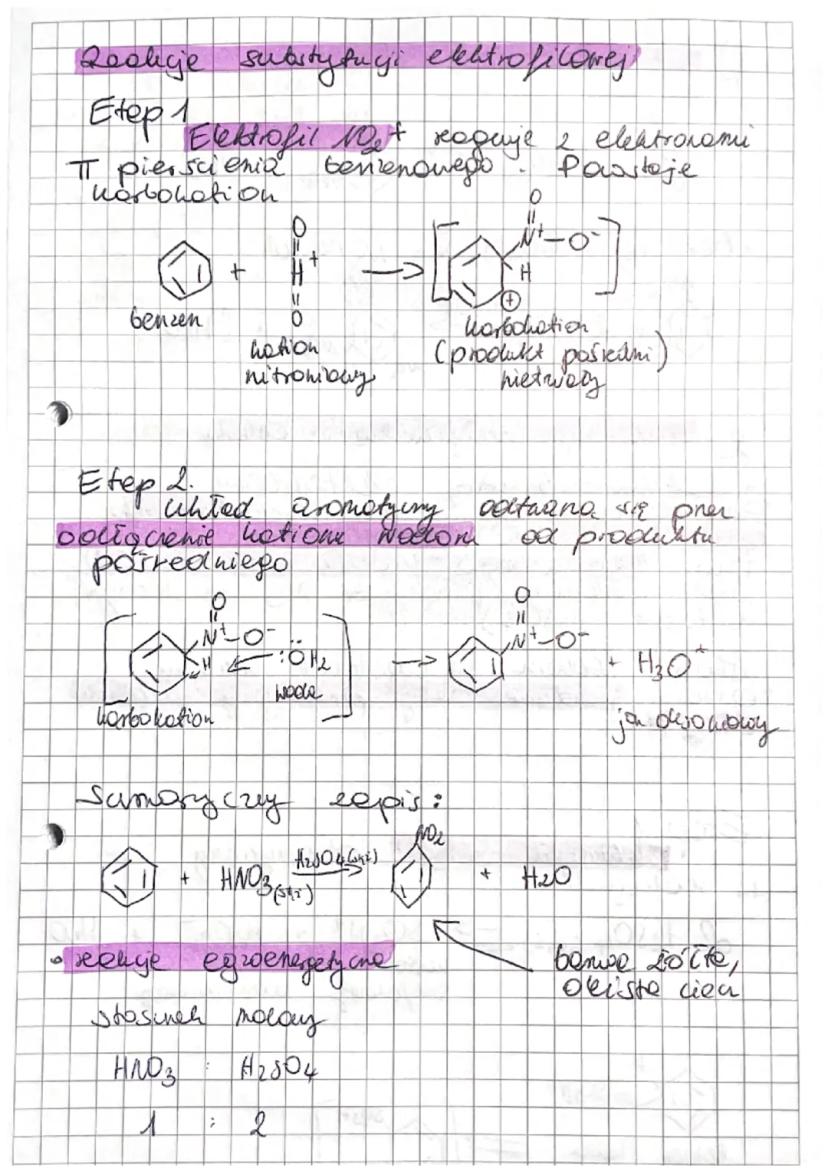 Reakcje substytucji elektrofilowej
Etap 1
Elektrofil NO2+ reaguje z elektronami
π pierścienia benzenowego. Powstaje
karbokation
O
O N+ O-
+ H+ → H
O +
benzen
karbokation
kation (produkt pośredni)
nitroniowy nietrwały
Etap 2.
układ aromatyczny odtwarza się przez
odłączenie kationu wodoru od produktu
pośredniego
O O
N+ O- N+ O-
H :ÖH2 → + H3O+
woda
karbokation jon oksoniowy
Sumaryczny zapis:
NO2
+ HNO3(stęż) H2SO4(stęż) → + H2O
• reakcje egzoenergetyczne
barwa żółta,
oleista ciecz
stosunek molowy
HNO3 : H2SO4
1 : 2